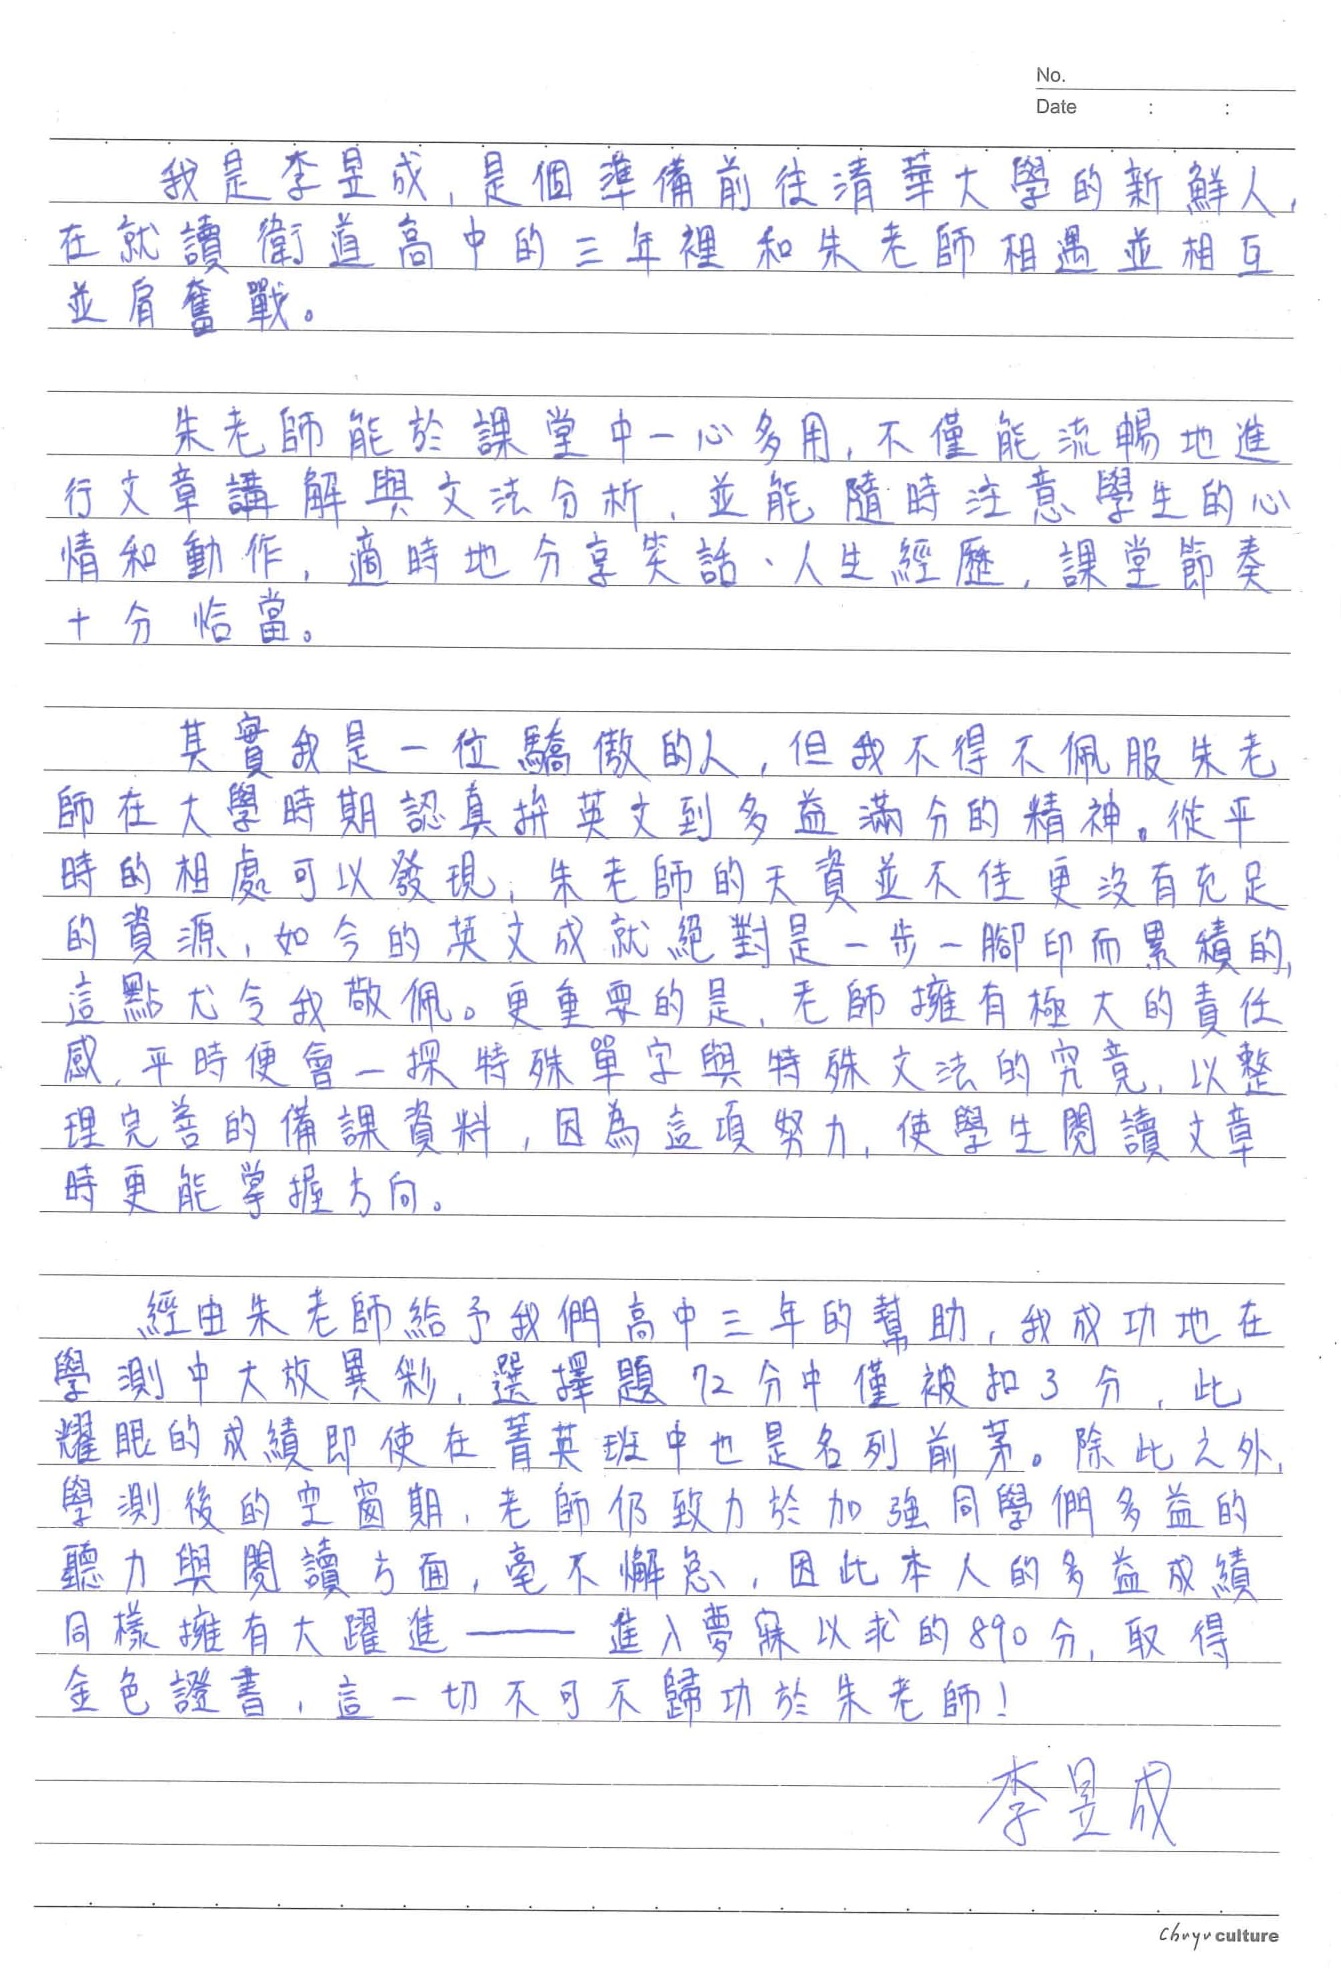 No.
Date : :
我是李昱成,是個準備前往清華大學的新鮮人,
在就讀衛道高中的三年裡和朱老師相遇並相互
並肩奮戰。
朱老師能於課堂中一心多用,不僅能流暢地進
行文章講解與文法分析,並能隨時注意學生的心
情和動作,適時地分享笑話、人生經歷,課堂節奏
十分恰當。
其實我是一位驕傲的人,但我不得不佩服朱老
師在大學時期認真拚英文到多益滿分的精神。從平
時的相處可以發現,朱老師的天資並不佳更沒有充足
的資源,如今的英文成就絕對是一步一腳印而累積的,
這點尤令我敬佩。更重要的是,老師擁有極大的責任
感,平時便會一探特殊單字與特殊文法的究竟,以整
理完善的備課資料,因為這項努力,使學生閱讀文章
時更能掌握方向。
經由朱老師給予我們高中三年的幫助,我成功地在
學測中大放異彩,選擇題72分中僅被扣3分,此
耀眼的成績即使在菁英班中也是名列前茅。除此之外,
學測後的空窗期,老師仍致力於加強同學們多益的
聽力與閱讀方面,毫不懈怠,因此本人的多益成績
同樣擁有大躍進——進入夢寐以求的890分,取得
金色證書,這一切不可不歸功於朱老師!
李昱成
Chuyu culture